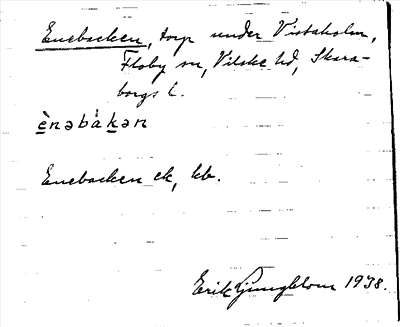 Enebacken, torp under Vistaholm,
Floby sn, Vilske hd, Skara-
borgs l.
ènəbákən
Enebacken ek, kb.
Erik Ljungblom 1938.